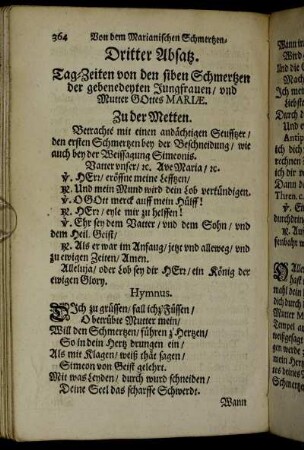 364 Von dem Marianischen Schmertzen-
Dritter Absatz.
Tag-Zeiten von den siben Schmertzen
der gebenedeyten Jungfrauen / vnd
Mutter GOttes MARIÆ.
Zu der Metten.
Betrachte mit einen andächtigen Seufftzer /
den ersten Schmertzen bey der Beschneidung / wie
auch bey der Weissagung Simeonis.
Vatter vnser / ꝛc. Ave Maria / ꝛc.
℣. HErr / eröffne meine Lefftzen /
℟. Und mein Mund wird dein Lob verkündigen.
℣. O GOtt merck auff mein Hülff!
℟. HErr / eyle mir zu helffen!
℣. Ehr sey dem Vatter / vnd dem Sohn / vnd
dem Heil. Geist /
℟. Als er war im Anfang / jetzt vnd alleweg / vnd
zu ewigen Zeiten / Amen.
Alleluja / oder Lob sey dir HErr / ein König der
ewigen Glory.
Hymnus.
DIch zu grüssen / fall ich z'Füssen /
O betrübte Mutter mein /
Will den Schmertzen / führen z'Hertzen /
So in dein Hertz drungen ein /
Als mit Klagen / weiß thät sagen /
Simeon von Geist gelehrt.
Mit was Leyden / durch wurd schneiden /
Deine Seel das scharffe Schwerdt.
Wann